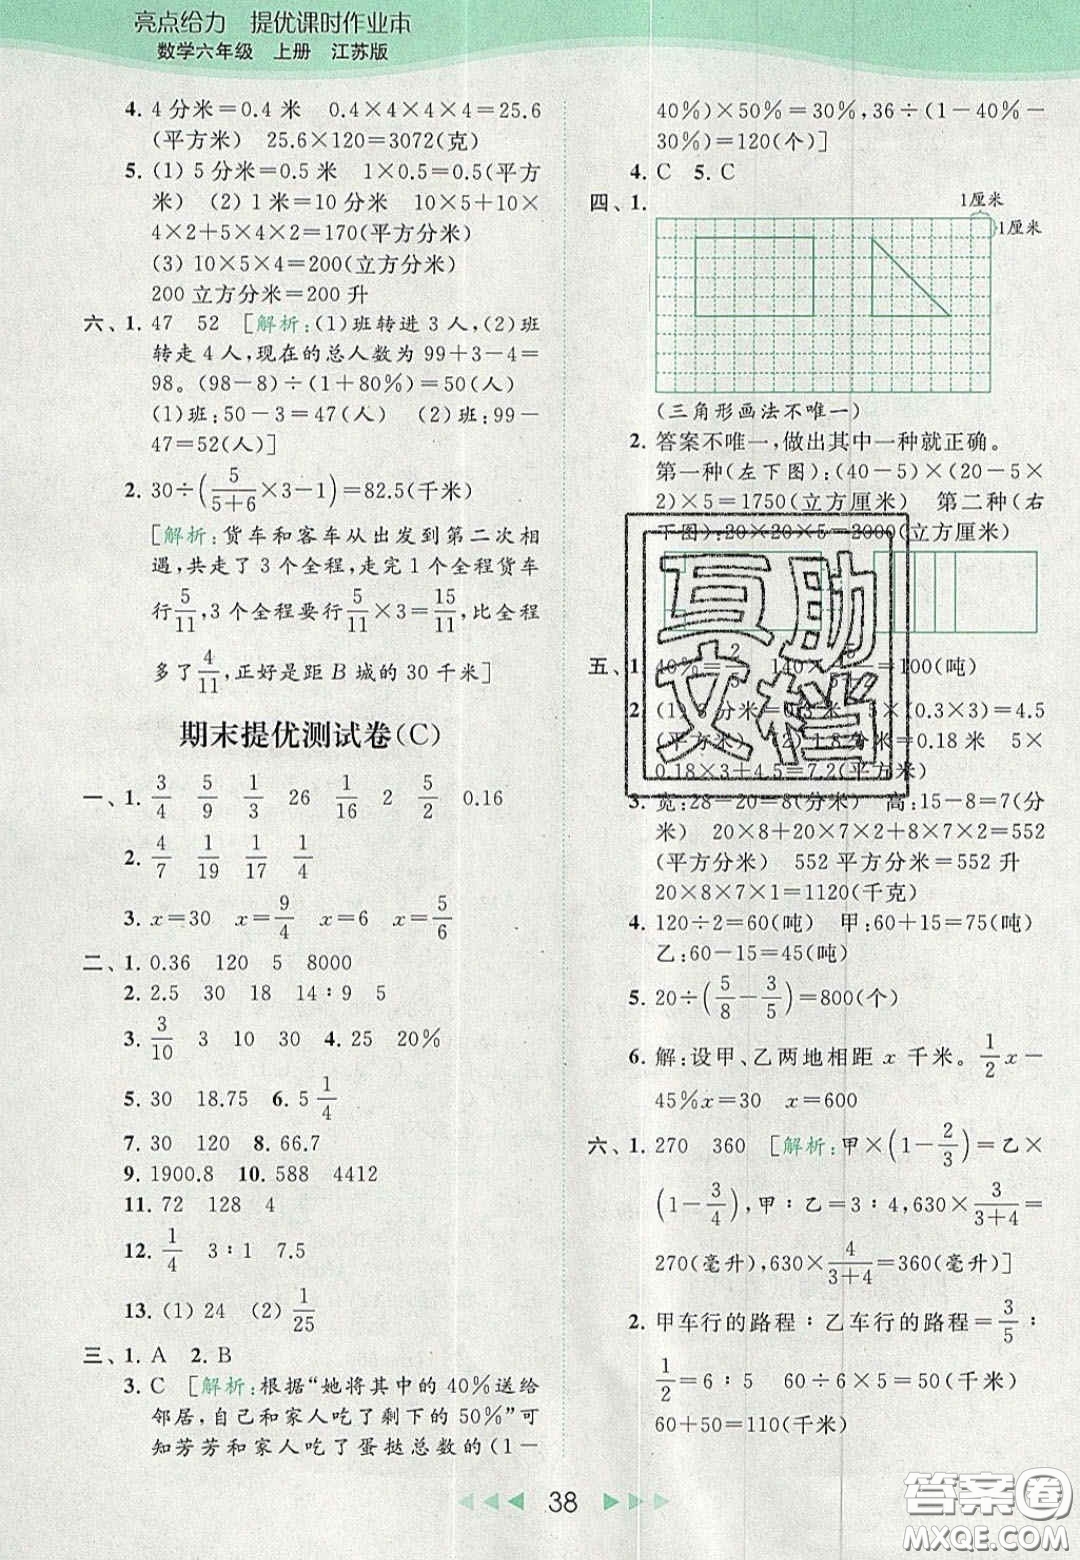 亮点给力 提优课时作业本
数学六年级 上册 江苏版
4. 4分米＝0.4米 0.4×4×4×4＝25.6
(平方米) 25.6×120＝3072(克)
5. (1) 5分米＝0.5米 1×0.5＝0.5(平方
米) (2) 1米＝10分米 10×5＋10×
4×2＋5×4×2＝170(平方分米)
(3) 10×5×4＝200(立方分米)
200立方分米＝200升
六、1. 47 52 [解析:(1)班转进3人,(2)班
转走4人,现在的总人数为99＋3－4＝
98。(98－8)÷(1＋80%)＝50(人)
(1)班:50－3＝47(人) (2)班:99－
47＝52(人)]
2. 30÷(5/(5+6)×3－1)＝82.5(千米)
[解析:货车和客车从出发到第二次相
遇,共走了3个全程,走完1个全程货车
行5/11,3个全程要行5/11×3＝15/11,比全程
多了4/11,正好是距B城的30千米]
期末提优测试卷(C)
一、1. 3/4 5/9 1/3 26 1/16 2 5/2 0.16
2. 4/7 1/19 1/17 1/4
3. x＝30 x＝9/4 x＝6 x＝5/6
二、1. 0.36 120 5 8000
2. 2.5 30 18 14∶9 5
3. 3/10 3 10 30 4. 25 20%
5. 30 18.75 6. 5 1/4
7. 30 120 8. 66.7
9. 1900.8 10. 588 4412
11. 72 128 4
12. 1/4 3∶1 7.5
13. (1) 24 (2) 1/25
三、1. A 2. B
3. C [解析:根据“她将其中的40%送给
邻居,自己和家人吃了剩下的50%”可
知芳芳和家人吃了蛋挞总数的(1－
40%)×50%＝30%,36÷(1－40%－
30%)＝120(个)]
4. C 5. C
四、1.
1厘米
1厘米
(三角形画法不唯一)
2. 答案不唯一,做出其中一种就正确。
第一种(左下图):(40－5)×(20－5×
2)×5＝1750(立方厘米) 第二种(右
下图):20×20×5＝2000(立方厘米)
五、1. 40%＝2/5 140×5/ ＝100(吨)
2. (1) 3分米＝0.3米 5×(0.3×3)＝4.5
(平方米) (2) 1.8分米＝0.18米 5×
0.18×3＋4.5＝7.2(平方米)
3. 宽:28－20＝8(分米) 高:15－8＝7(分
米) 20×8＋20×7×2＋8×7×2＝552
(平方分米) 552平方分米＝552升
20×8×7×1＝1120(千克)
4. 120÷2＝60(吨) 甲:60＋15＝75(吨)
乙:60－15＝45(吨)
5. 20÷(5/8－3/5)＝800(个)
6. 解:设甲、乙两地相距x千米。1/2x－
45%x＝30 x＝600
六、1. 270 360 [解析:甲×(1－2/3)＝乙×
(1－3/4),甲∶乙＝3∶4,630×3/(3+4)＝
270(毫升),630×4/(3+4)＝360(毫升)]
2. 甲车行的路程∶乙车行的路程＝3/5∶
1/2＝6∶5 60÷6×5＝50(千米)
60＋50＝110(千米)
互助
文档
38
答案圈
MXQE.COM